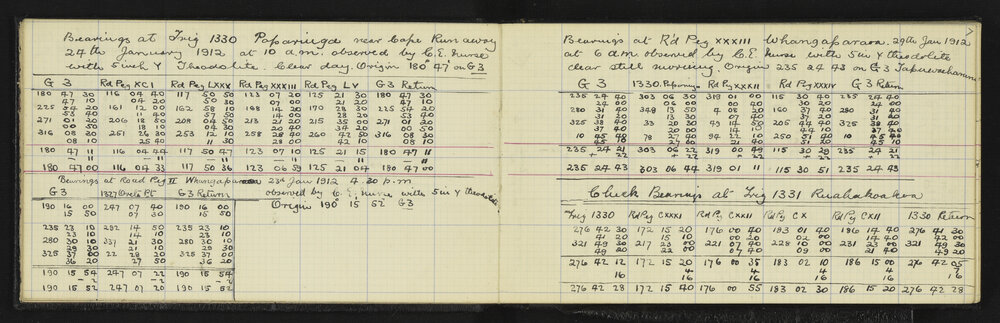 Bearings at Trig 1330 Papariuga near Cape Runaway
24th January 1912 at 10 a.m. observed by C.E. nurse
with 5 inch Y Theodolite. Clear day. Origin 180° 47' on G3
G 3 Rd Peg XC I Rd Peg LXXX Rd Peg XXXIII Rd Peg LV G 3 Return
180 47 30 116 04 40 117 50 50 123 07 20 125 21 30 180 47 30
47 10 04 20 50 30 07 00 21 20 47 10
225 54 20 161 12 00 162 58 10 168 14 20 170 28 30 225 54 20
53 40 11 40 57 50 14 00 28 20 53 40
271 01 20 206 18 50 208 04 50 213 21 20 215 35 00 271 01 20
00 50 18 10 04 30 20 40 34 20 00 50
316 08 30 251 26 30 253 12 10 258 28 40 260 42 50 316 08 30
08 10 25 40 11 30 28 00 42 10 08 10
180 47 11 116 04 44 117 50 47 123 07 10 125 21 15 180 47 11
- 11 - 11 - 11 - 11 - 11 - 11
180 47 00 116 04 33 117 50 36 123 06 59 125 21 04 180 47 00
Bearings at Road Peg II Whangaparaoa 23rd Jan 1912 4.30 p.m
observed by C.E. nurse with 5 in Y theodolite
Origin 190° 15' 52" G3
G 3 1327 Orete Pt G 3 Return
190 16 00 247 07 40 190 16 00
15 50 07 30 15 50
235 23 10 292 14 50 235 23 10
23 10 14 10 23 10
280 30 10 337 21 30 280 30 10
29 30 21 10 29 30
325 37 00 22 28 20 325 37 00
36 20 27 50 36 20
190 15 54 247 07 22 190 15 54
-2 -2 -2
190 15 52 247 07 20 190 15 52
Bearings at Rd Peg XXXIII Whangaparaoa. 29th Jan 1912
at 6 a.m. observed by C.E. nurse with 5 in Y theodolite
clear still morning. Origin 235 24 43 on G 3 Tapuwaharuru
G 3 1330. Papariuga Rd Peg XXXII Rd Peg XXXIV G 3 Return
235 24 40 303 06 30 319 01 00 115 30 40 235 24 40
24 00 06 00 00 40 30 20 24 00
280 31 40 348 13 50 4 08 20 160 37 40 280 31 40
325 38 40 33 20 30 49 14 50 205 44 40 325 38 40
10 45 40 78 27 40 94 22 10 250 51 40 10 45 40
235 24 21 303 06 22 319 00 49 115 30 29 235 24 21
+ 22 + 22 + 22 + 22 + 22
235 24 43 303 06 44 319 01 11 115 30 51 235 24 43
Check Bearings at Trig 1331 Ruahakoaken
Trig 1330 Rd Peg CXXI Rd Peg CXXII Rd Peg CX Rd Peg CXII 1330 Return
276 42 30 172 15 20 176 00 40 183 01 40 186 14 40 276 41 30
321 49 30 217 23 00 221 07 40 228 10 00 231 23 00 321 49 30
276 42 12 172 15 20 176 00 35 183 02 10 186 15 00 276 42 05
276 42 28 172 15 40 176 00 55 183 02 30 186 15 20 276 42 28